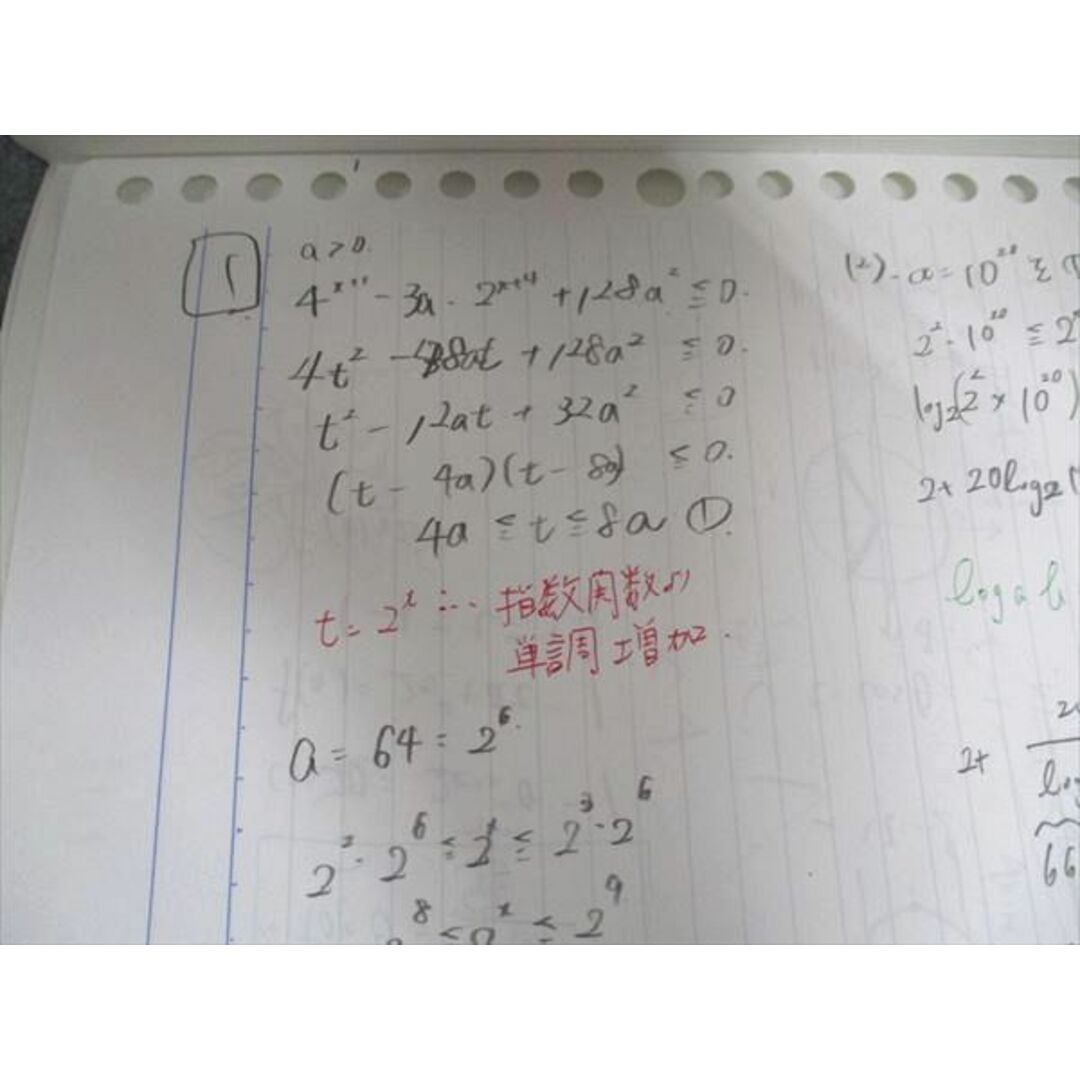 1
a>0.
4^{x+1} - 3a・2^{x+4} + 128a² ≦ 0.
4t² - 48at + 128a² ≦ 0.
t² - 12at + 32a² ≦ 0
(t - 4a)(t - 8a) ≦ 0.
4a ≦ t ≦ 8a ①.
t = 2^x … 指数関数より
単調増加.
a = 64 = 2⁶.
2²・2⁶ ≦ 2^x ≦ 2³・2⁶
2⁸ ≦ 2^x ≦ 2⁹
(2). a = 10²⁰ を ①
2²・10²⁰ ≦ 2
log₂(2² × 10²⁰)
2+ 20log₂
log a b
2+
log
66